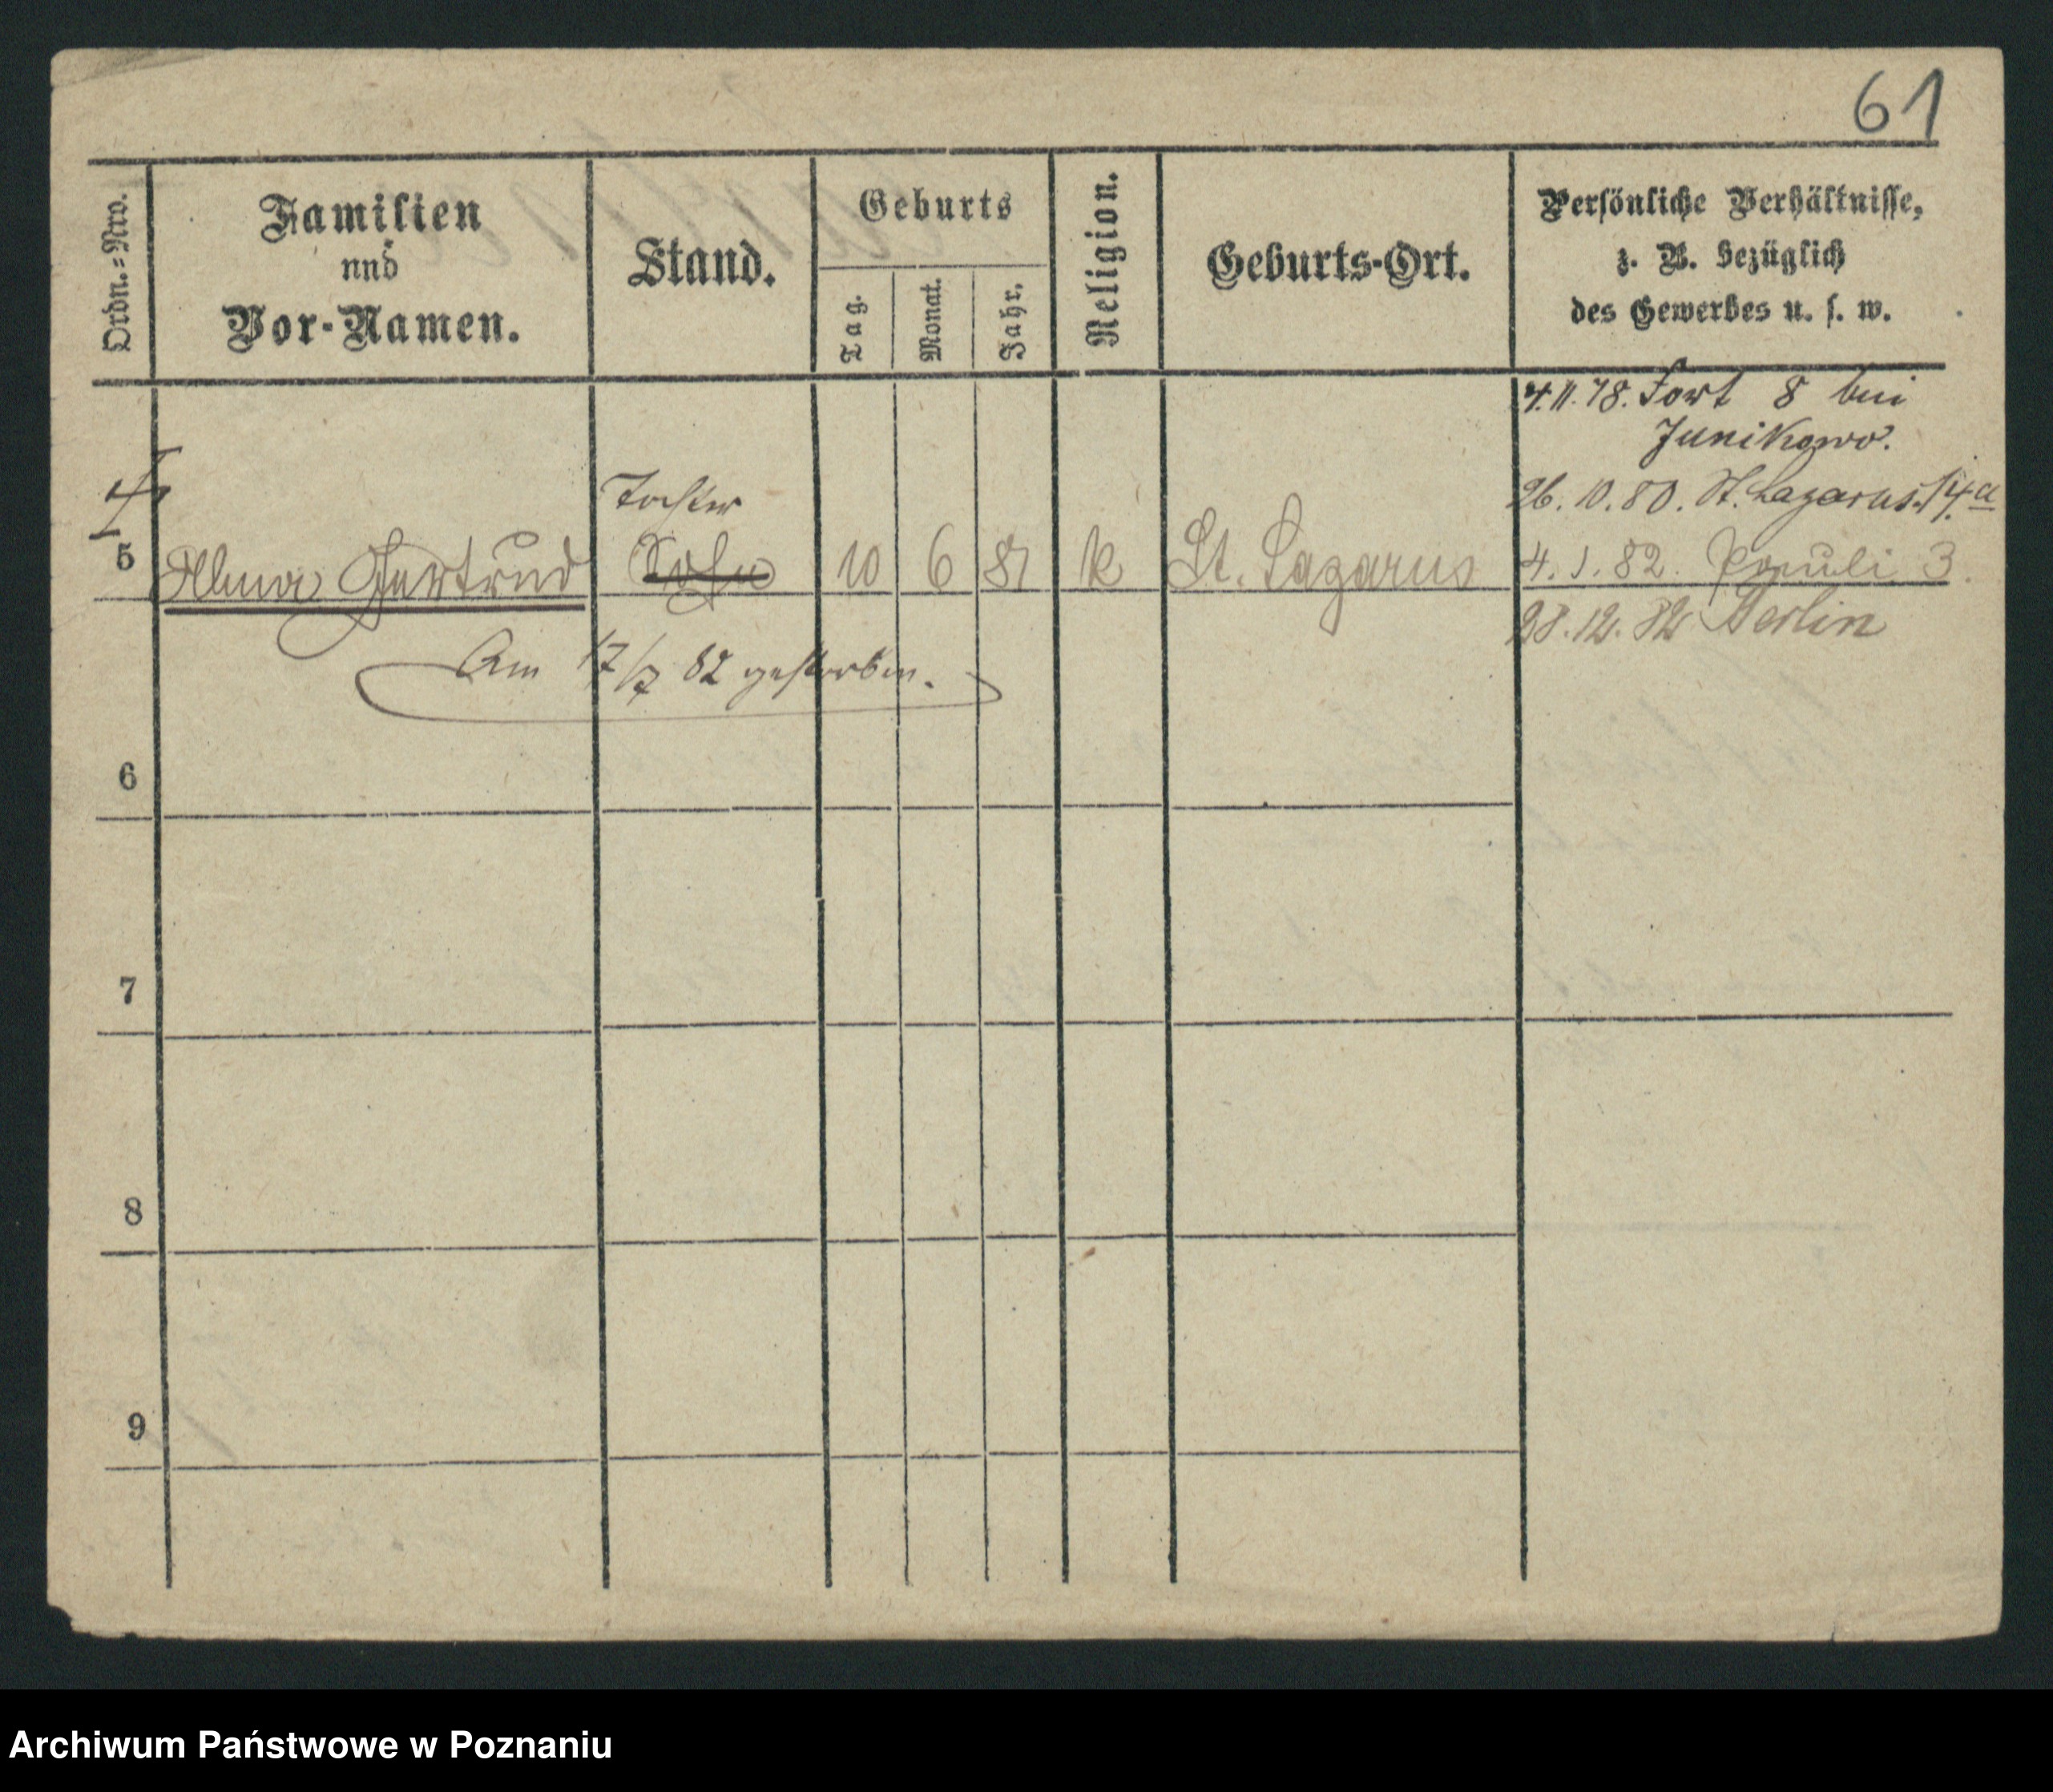 61
Ordn.=Nro.
Familien
und
Vor-Namen.
Stand.
Geburts
Tag.
Monat.
Jahr.
Religion.
Geburts-Ort.
Persönliche Verhältnisse,
z. B. bezüglich
des Gewerbes u. s. w.
4.11.78. Fort 8 bei
Junikowo.
26.10.80. St. Lazarus 14a
Tochter
5 Alma Gertrud Sohn 10 6 81 k St. Lazarus 4.1.82. 3.
28.12.82 Berlin
Am 17/7 82 gestorben.
6
7
8
9
Archiwum Państwowe w Poznaniu